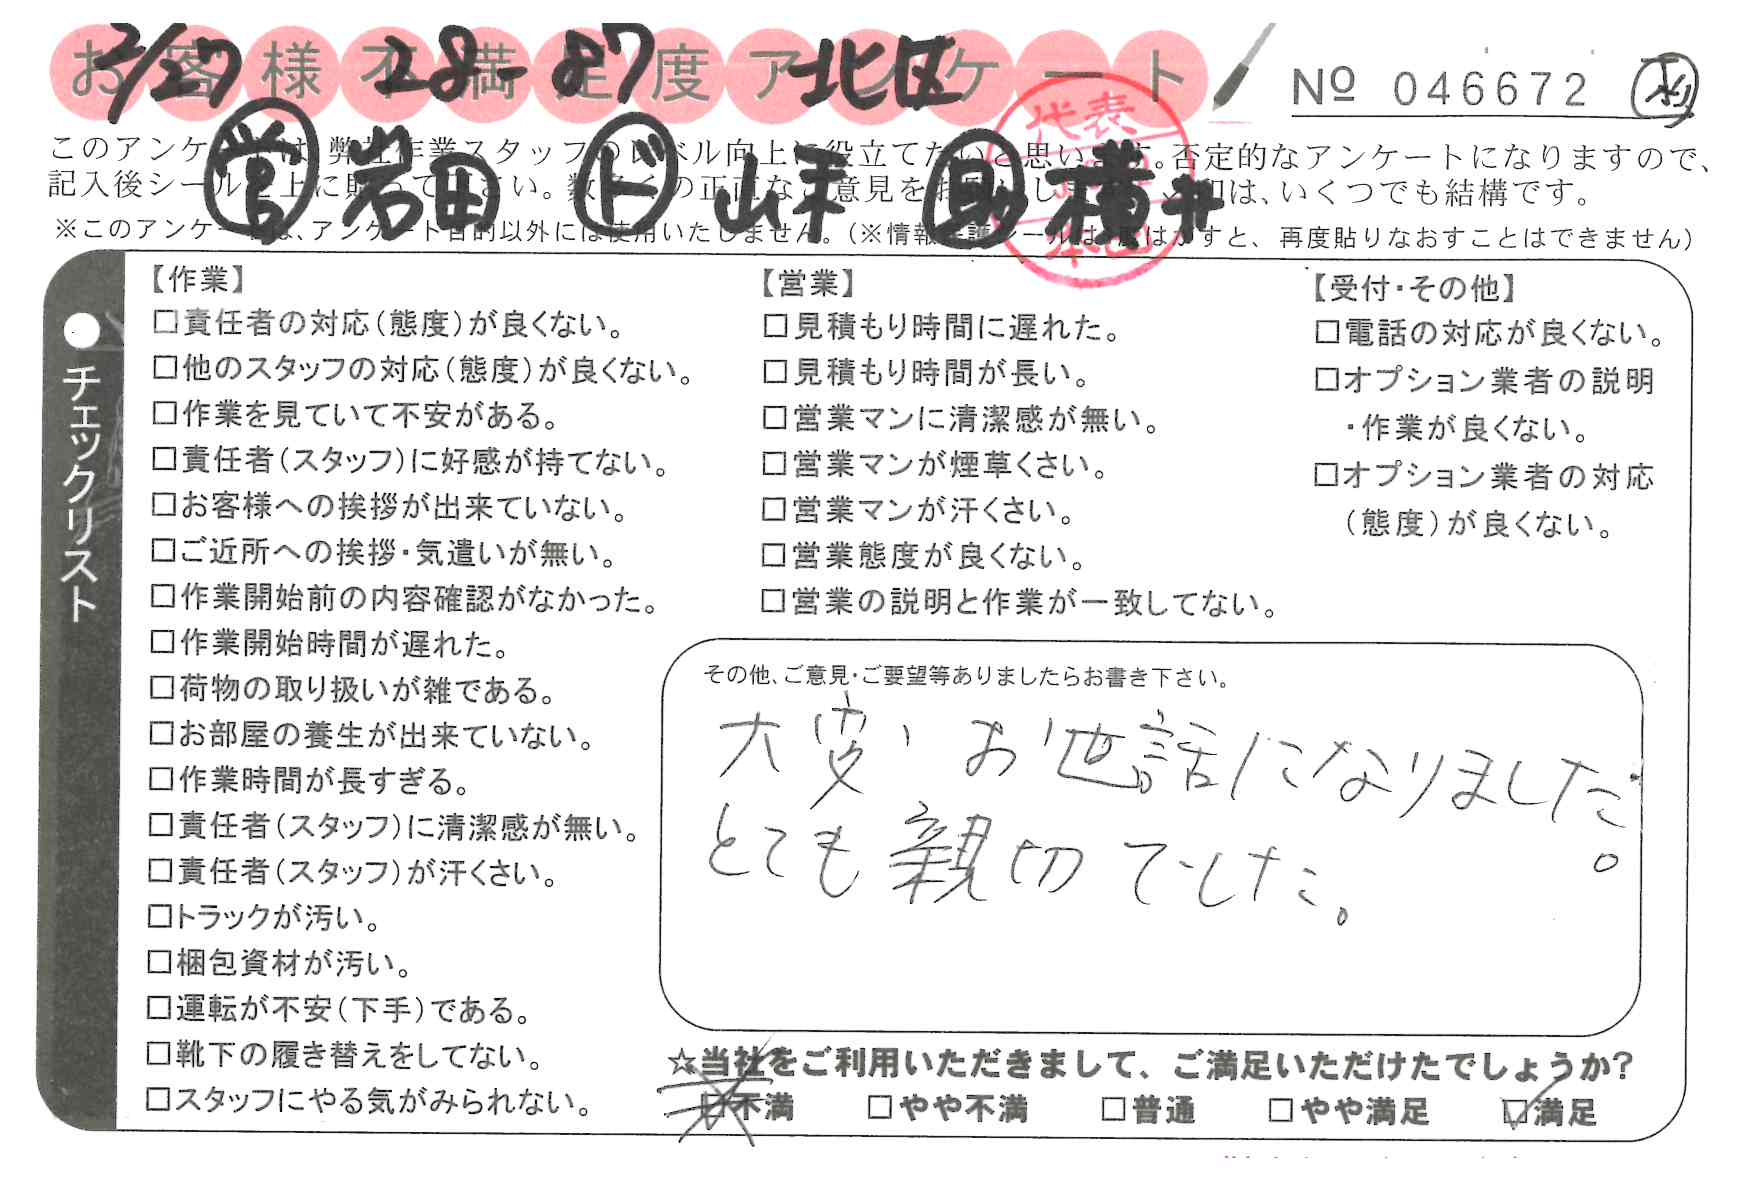 お客様不満足度アンケート
2/27 28-87 北区
Nº 046672
このアンケートは、弊社作業スタッフのレベル向上に役立てたいと思います。否定的なアンケートになりますので、
記入後シールを上に貼って下さい。数多くの正直なご意見をお願いします。×印は、いくつでも結構です。
営 岩田 ド 山本 助 横井
※このアンケートは、アンケート目的以外には使用いたしません。(※情報保護シールは1度はがすと、再度貼りなおすことはできません)
代表
本田
●チェックリスト
【作業】
□責任者の対応(態度)が良くない。
□他のスタッフの対応(態度)が良くない。
□作業を見ていて不安がある。
□責任者(スタッフ)に好感が持てない。
□お客様への挨拶が出来ていない。
□ご近所への挨拶・気遣いが無い。
□作業開始前の内容確認がなかった。
□作業開始時間が遅れた。
□荷物の取り扱いが雑である。
□お部屋の養生が出来ていない。
□作業時間が長すぎる。
□責任者(スタッフ)に清潔感が無い。
□責任者(スタッフ)が汗くさい。
□トラックが汚い。
□梱包資材が汚い。
□運転が不安(下手)である。
□靴下の履き替えをしてない。
□スタッフにやる気がみられない。
【営業】
□見積もり時間に遅れた。
□見積もり時間が長い。
□営業マンに清潔感が無い。
□営業マンが煙草くさい。
□営業マンが汗くさい。
□営業態度が良くない。
□営業の説明と作業が一致してない。
【受付・その他】
□電話の対応が良くない。
□オプション業者の説明
・作業が良くない。
□オプション業者の対応
(態度)が良くない。
その他、ご意見・ご要望等ありましたらお書き下さい。
大変お世話になりました。
とても親切でした。
☆当社をご利用いただきまして、ご満足いただけたでしょうか?
□不満 □やや不満 □普通 □やや満足 ☑満足